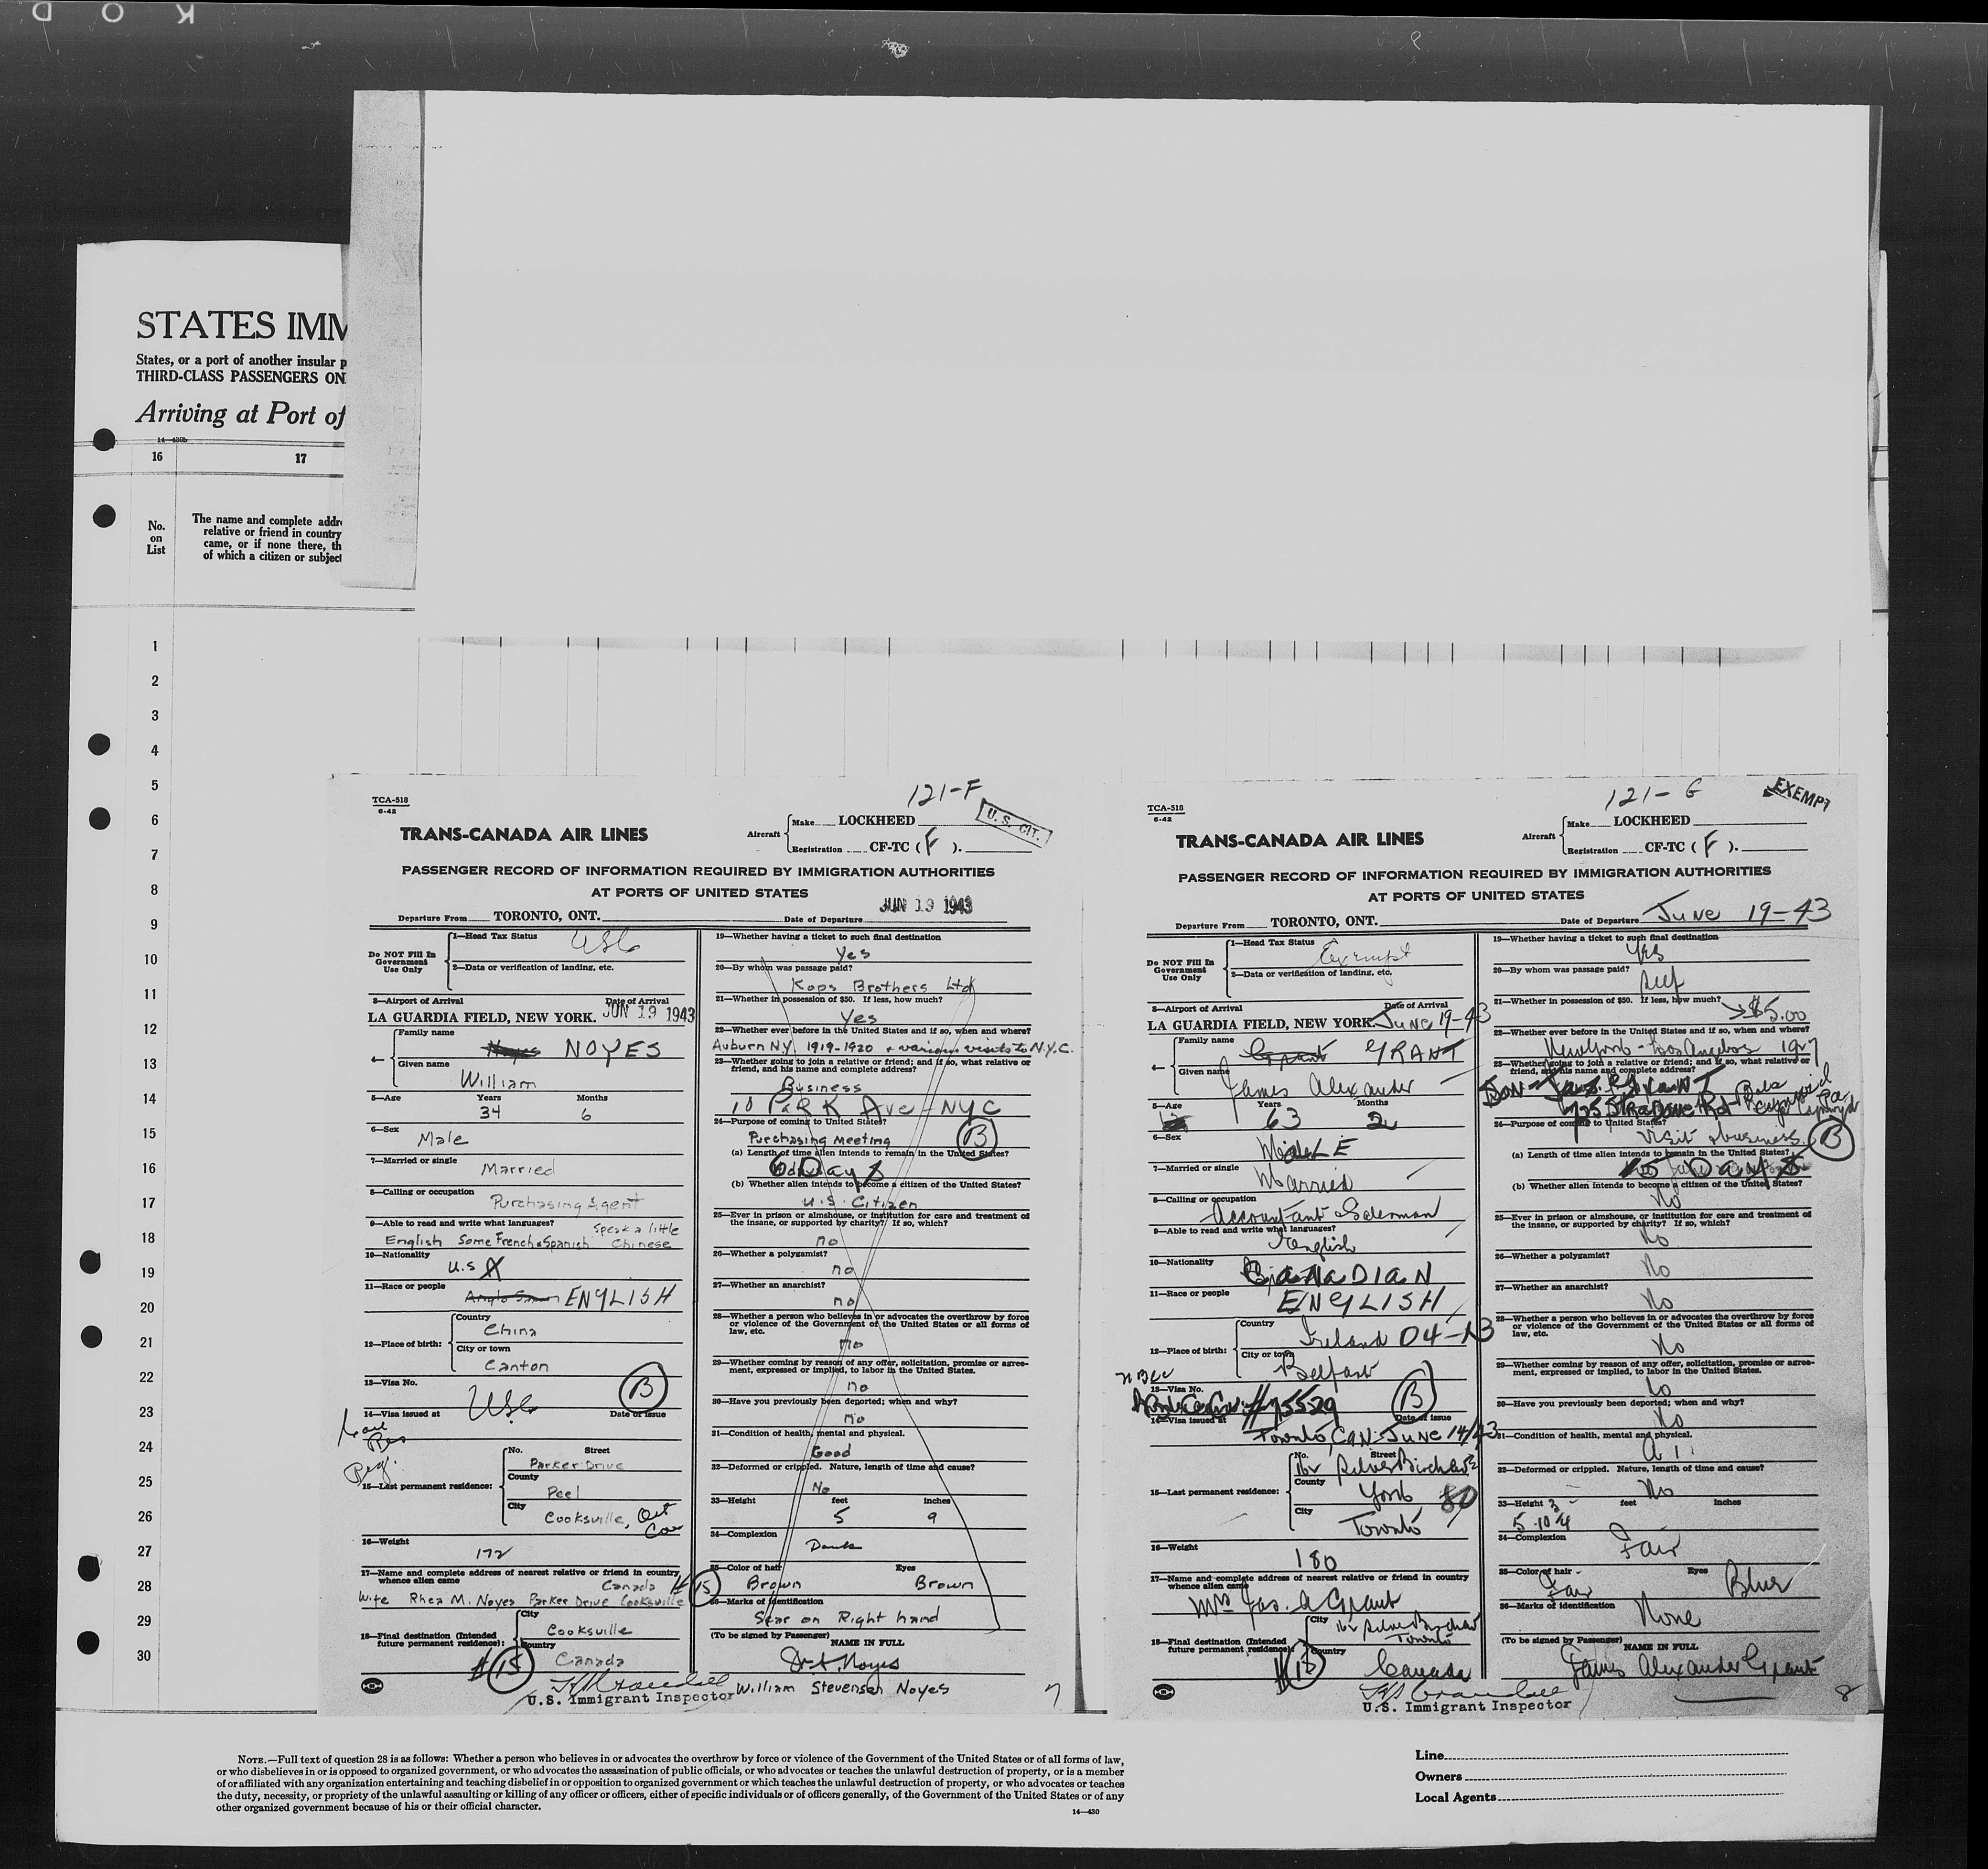 K O D
STATES IMM
States, or a port of another insular p
THIRD-CLASS PASSENGERS ON
Arriving at Port of
14—430b
16 17
No. on List
The name and complete addre
relative or friend in country
came, or if none there, th
of which a citizen or subject
1
2
3
4
5
6
7
8
9
10
11
12
13
14
15
16
17
18
19
20
21
22
23
24
25
26
27
28
29
30
121-F
TCA-518
6-42
U. S. CIT.
TRANS-CANADA AIR LINES
Aircraft
Make LOCKHEED
Registration CF-TC ( F ).
PASSENGER RECORD OF INFORMATION REQUIRED BY IMMIGRATION AUTHORITIES
AT PORTS OF UNITED STATES
Departure From TORONTO, ONT. Date of Departure JUN 19 1943
Do NOT Fill In Government Use Only
1—Head Tax Status USC
2—Data or verification of landing, etc.
3—Airport of Arrival Date of Arrival
LA GUARDIA FIELD, NEW YORK. JUN 19 1943
4—
Family name Noyes NOYES
Given name William
5—Age Years Months
34 6
6—Sex Male
7—Married or single Married
8—Calling or occupation Purchasing Agent
9—Able to read and write what languages? Speak a little
English Some French & Spanish Chinese
10—Nationality U.S
11—Race or people ENGLISH
12—Place of birth:
Country China
City or town Canton
13—Visa No. USC B
14—Visa issued at Date of issue
15—Last permanent residence:
No. Street
Parker Drive
County Peel
City Cooksville, Ont
Can
16—Weight 172
17—Name and complete address of nearest relative or friend in country
whence alien came Canada #15
Wife Rhea M. Noyes Parker Drive Cooksville
18—Final destination (Intended
future permanent residence):
City Cooksville
Country Canada
#15
U.S. Immigrant Inspector
19—Whether having a ticket to such final destination
Yes
20—By whom was passage paid?
Kops Brothers Ltd
21—Whether in possession of $50. If less, how much?
Yes
22—Whether ever before in the United States and if so, when and where?
Auburn NY 1919-1920 + various visits to N.Y.C.
23—Whether going to join a relative or friend; and if so, what relative or
friend, and his name and complete address?
Business
10 PARK Ave - NYC
24—Purpose of coming to United States?
Purchasing Meeting B
(a) Length of time alien intends to remain in the United States?
6 Days
(b) Whether alien intends to become a citizen of the United States?
U.S. Citizen
25—Ever in prison or almshouse, or institution for care and treatment of
the insane, or supported by charity? If so, which?
no
26—Whether a polygamist?
no
27—Whether an anarchist?
no
28—Whether a person who believes in or advocates the overthrow by force
or violence of the Government of the United States or all forms of
law, etc.
no
29—Whether coming by reason of any offer, solicitation, promise or agree-
ment, expressed or implied, to labor in the United States.
no
30—Have you previously been deported; when and why?
no
31—Condition of health, mental and physical.
Good
32—Deformed or crippled. Nature, length of time and cause?
No
33—Height feet inches
5 9
34—Complexion
Dark
35—Color of hair Eyes
Brown Brown
36—Marks of identification
Scar on Right hand
(To be signed by Passenger) NAME IN FULL
William Stevenson Noyes
7
121- G
TCA-518
6-42
EXEMPT
TRANS-CANADA AIR LINES
Aircraft
Make LOCKHEED
Registration CF-TC ( F ).
PASSENGER RECORD OF INFORMATION REQUIRED BY IMMIGRATION AUTHORITIES
AT PORTS OF UNITED STATES
Departure From TORONTO, ONT. Date of Departure June 19-43
Do NOT Fill In Government Use Only
1—Head Tax Status Exempt
2—Data or verification of landing, etc.
3—Airport of Arrival Date of Arrival
LA GUARDIA FIELD, NEW YORK. June 19-43
4—
Family name Grant GRANT
Given name James Alexander
5—Age Years Months
63 2
6—Sex MALE
7—Married or single Married
8—Calling or occupation
Accountant
9—Able to read and write what languages?
English
10—Nationality CANADIAN
11—Race or people ENGLISH
12—Place of birth:
Country Ireland
City or town Belfast
13—Visa No. B
14—Visa issued at Date of issue
Toronto, CAN. June 14/43
15—Last permanent residence:
No. Street
162 Silver Birch Ave
County York
City Toronto
16—Weight 180
17—Name and complete address of nearest relative or friend in country
whence alien came
Mrs Jas. A Grant
18—Final destination (Intended
future permanent residence):
City 162 Silver Birch Ave
Toronto
Country Canada
U.S. Immigrant Inspector
19—Whether having a ticket to such final destination
Yes
20—By whom was passage paid?
Self
21—Whether in possession of $50. If less, how much?
$5.00
22—Whether ever before in the United States and if so, when and where?
New York - Los Angeles 1927
23—Whether going to join a relative or friend; and if so, what relative or
friend, and his name and complete address?
24—Purpose of coming to United States?
Visit & business B
(a) Length of time alien intends to remain in the United States?
15 DAYS
(b) Whether alien intends to become a citizen of the United States?
No
25—Ever in prison or almshouse, or institution for care and treatment of
the insane, or supported by charity? If so, which?
No
26—Whether a polygamist?
No
27—Whether an anarchist?
No
28—Whether a person who believes in or advocates the overthrow by force
or violence of the Government of the United States or all forms of
law, etc.
No
29—Whether coming by reason of any offer, solicitation, promise or agree-
ment, expressed or implied, to labor in the United States.
No
30—Have you previously been deported; when and why?
No
31—Condition of health, mental and physical.
A 1
32—Deformed or crippled. Nature, length of time and cause?
No
33—Height feet inches
5 10 3/4
34—Complexion
Fair
35—Color of hair Eyes
Fair Blue
36—Marks of identification
None
(To be signed by Passenger) NAME IN FULL
James Alexander Grant
8
NOTE.—Full text of question 28 is as follows: Whether a person who believes in or advocates the overthrow by force or violence of the Government of the United States or of all forms of law,
or who disbelieves in or is opposed to organized government, or who advocates the assassination of public officials, or who advocates or teaches the unlawful destruction of property, or is a member
of or affiliated with any organization entertaining and teaching disbelief in or opposition to organized government or which teaches the unlawful destruction of property, or who advocates or teaches
the duty, necessity, or propriety of the unlawful assaulting or killing of any officer or officers, either of specific individuals or of officers generally, of the Government of the United States or of any
other organized government because of his or their official character.
14—430
Line
Owners
Local Agents